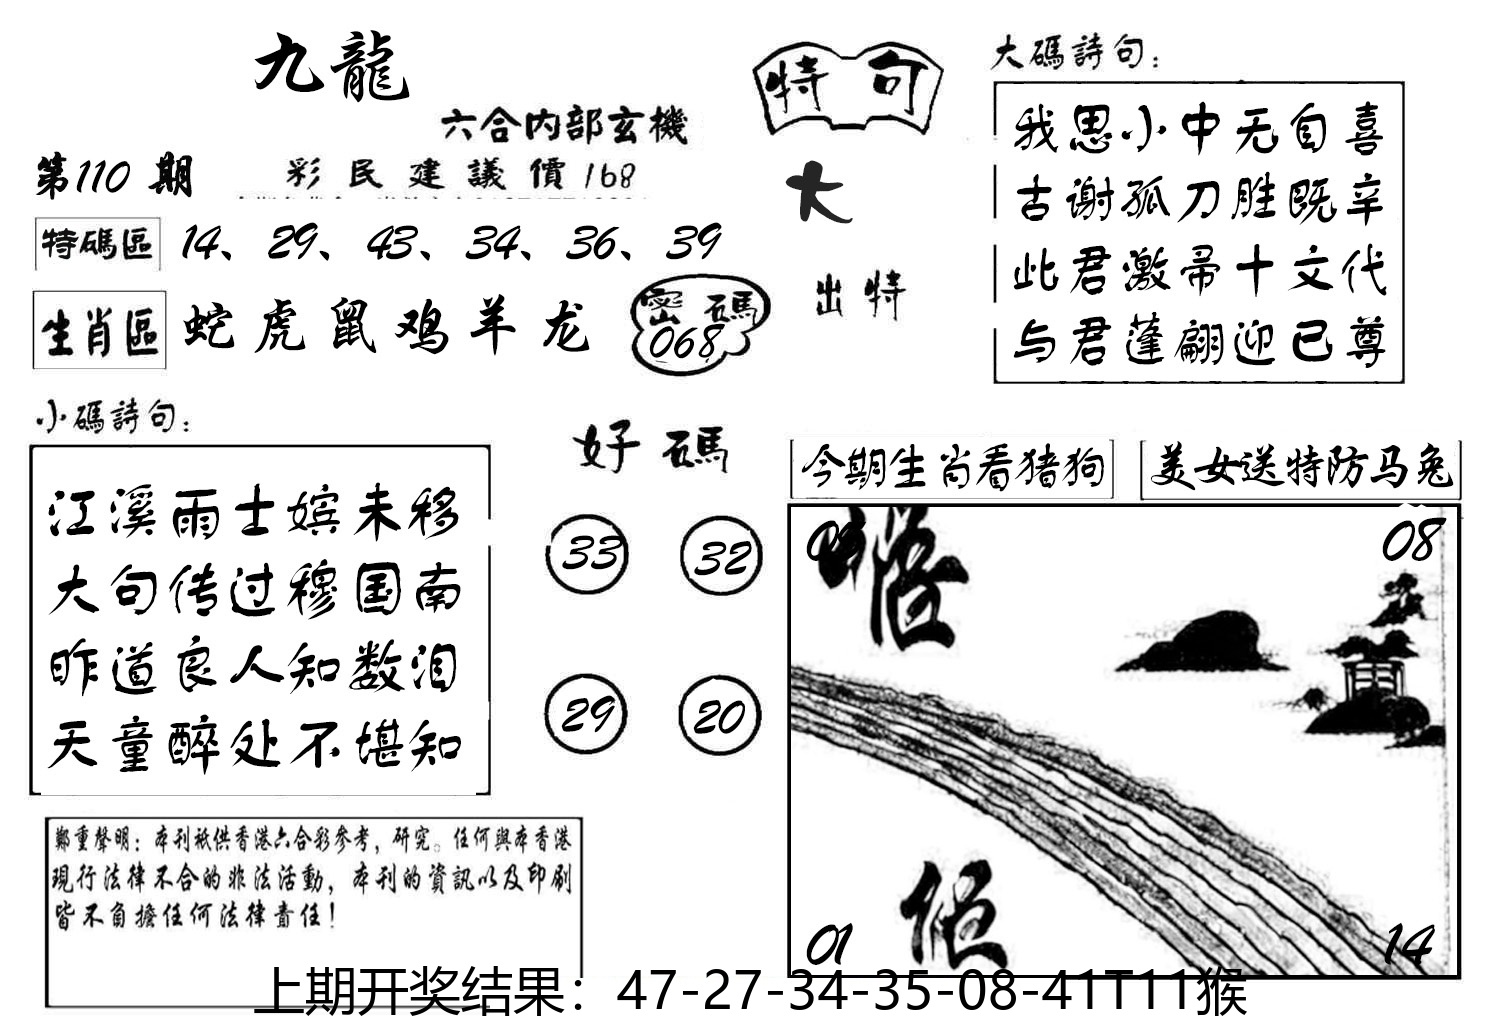 九龍
六合内部玄機
第110期
彩民建議價168
特碼區
14、29、43、34、36、39
生肖區
蛇虎鼠鸡羊龙
密碼
068
特句
大
出特
大碼詩句：
我思小中无自喜
古谢孤刀胜既辛
此君激帚十文代
与君蓬翩迎已尊
小碼詩句：
江溪雨士嫔未移
大句传过穆国南
昨道良人知数泪
天童醉处不堪知
好碼
33
32
29
20
今期生肖看猪狗
美女送特防马兔
08
01
14
鄭重聲明：本刊衹供香港六合彩參考，研究。任何與本香港
現行法律不合的非法活動，本刊的資訊以及印刷
皆不負擔任何法律責任！
上期开奖结果：47-27-34-35-08-41T11猴